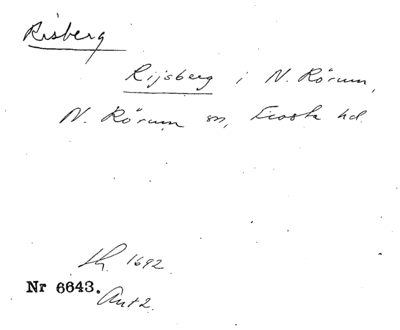 Risberg
Rijsberg i N. Rörum,
N. Rörum sn, Frosta hd.
Jb. 1692.
Nr 6643.
Ant 2.